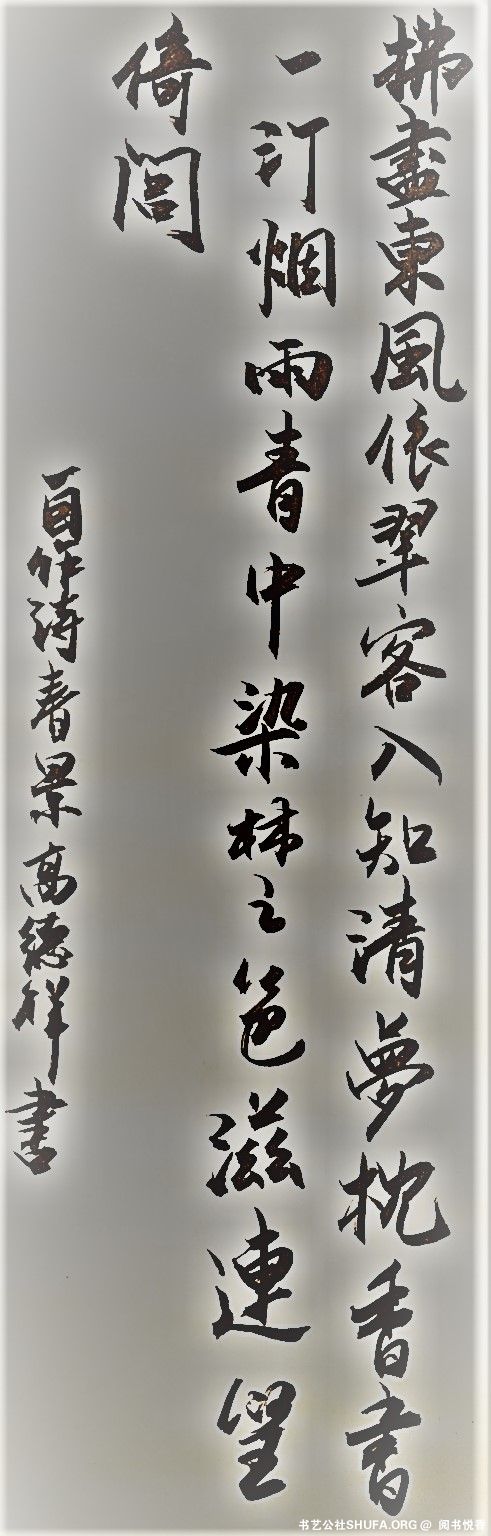 拂盡東風依翠客入知清夢枕香書
一汀烟雨青中染林之色滋連望
倚閭
自作詩春景高德祥書
书艺公社SHUFA.ORG @ 阅书悦香